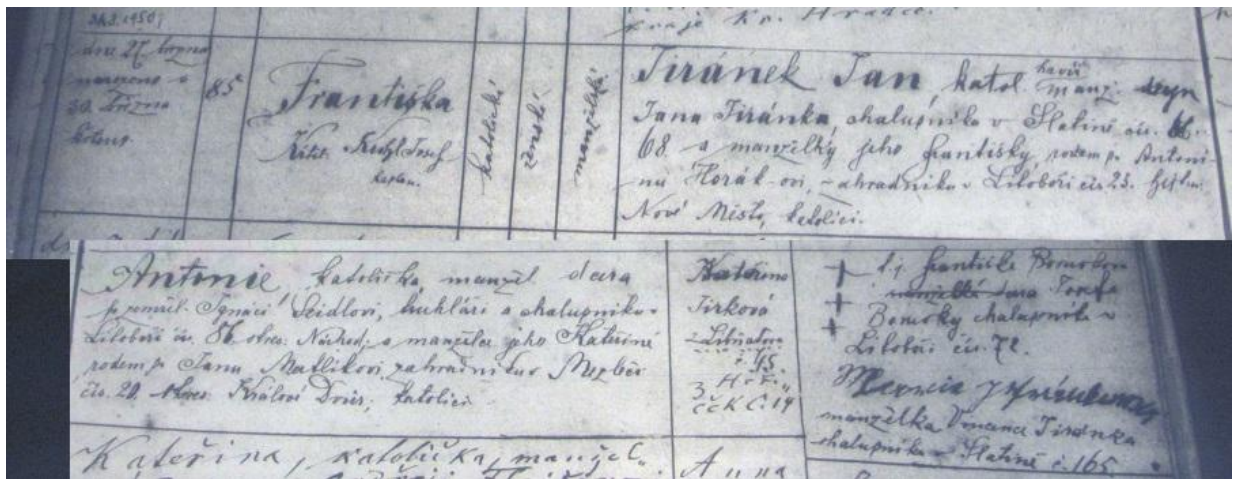 28.2.1950;
kraje Kr. Hradec.
dne 27. března
narozena a
30. března
křtena
85
Františka
Křtil: Josef
kaplan.
katolické
ženské
manželské
Jiránek Jan, katol. havíř manž. syn
Jana Jiránka, chalupníka v Slatině čís.
68 a manželky jeho Františky, rodem p. Antoni-
nu Horák-ovi, zahradníku v Litoboři čís. 23. hejtm.
Nové Město, katolíci.
Antonie, katolička, manžel. dcera
p. Ignáci Seidlovi, truhláři a chalupníku v
Litoboři čís. 86. okres: Náchod; a manželce jeho Kateřině
rodem p. Janu Matlíkovi, zahradníku v Mezleči
čís. 20. okres Králové Dvůr; katolíci
Kateřina
Jirková
z Libňatova
č. 115
+ t. j. Františka
+ manželka
+ chalupník v
Litoboři čís. 72.
manželka Vincence Jiránka
chalupníka v Slatině č. 165
Kateřina, katolička, manžel.
Anna